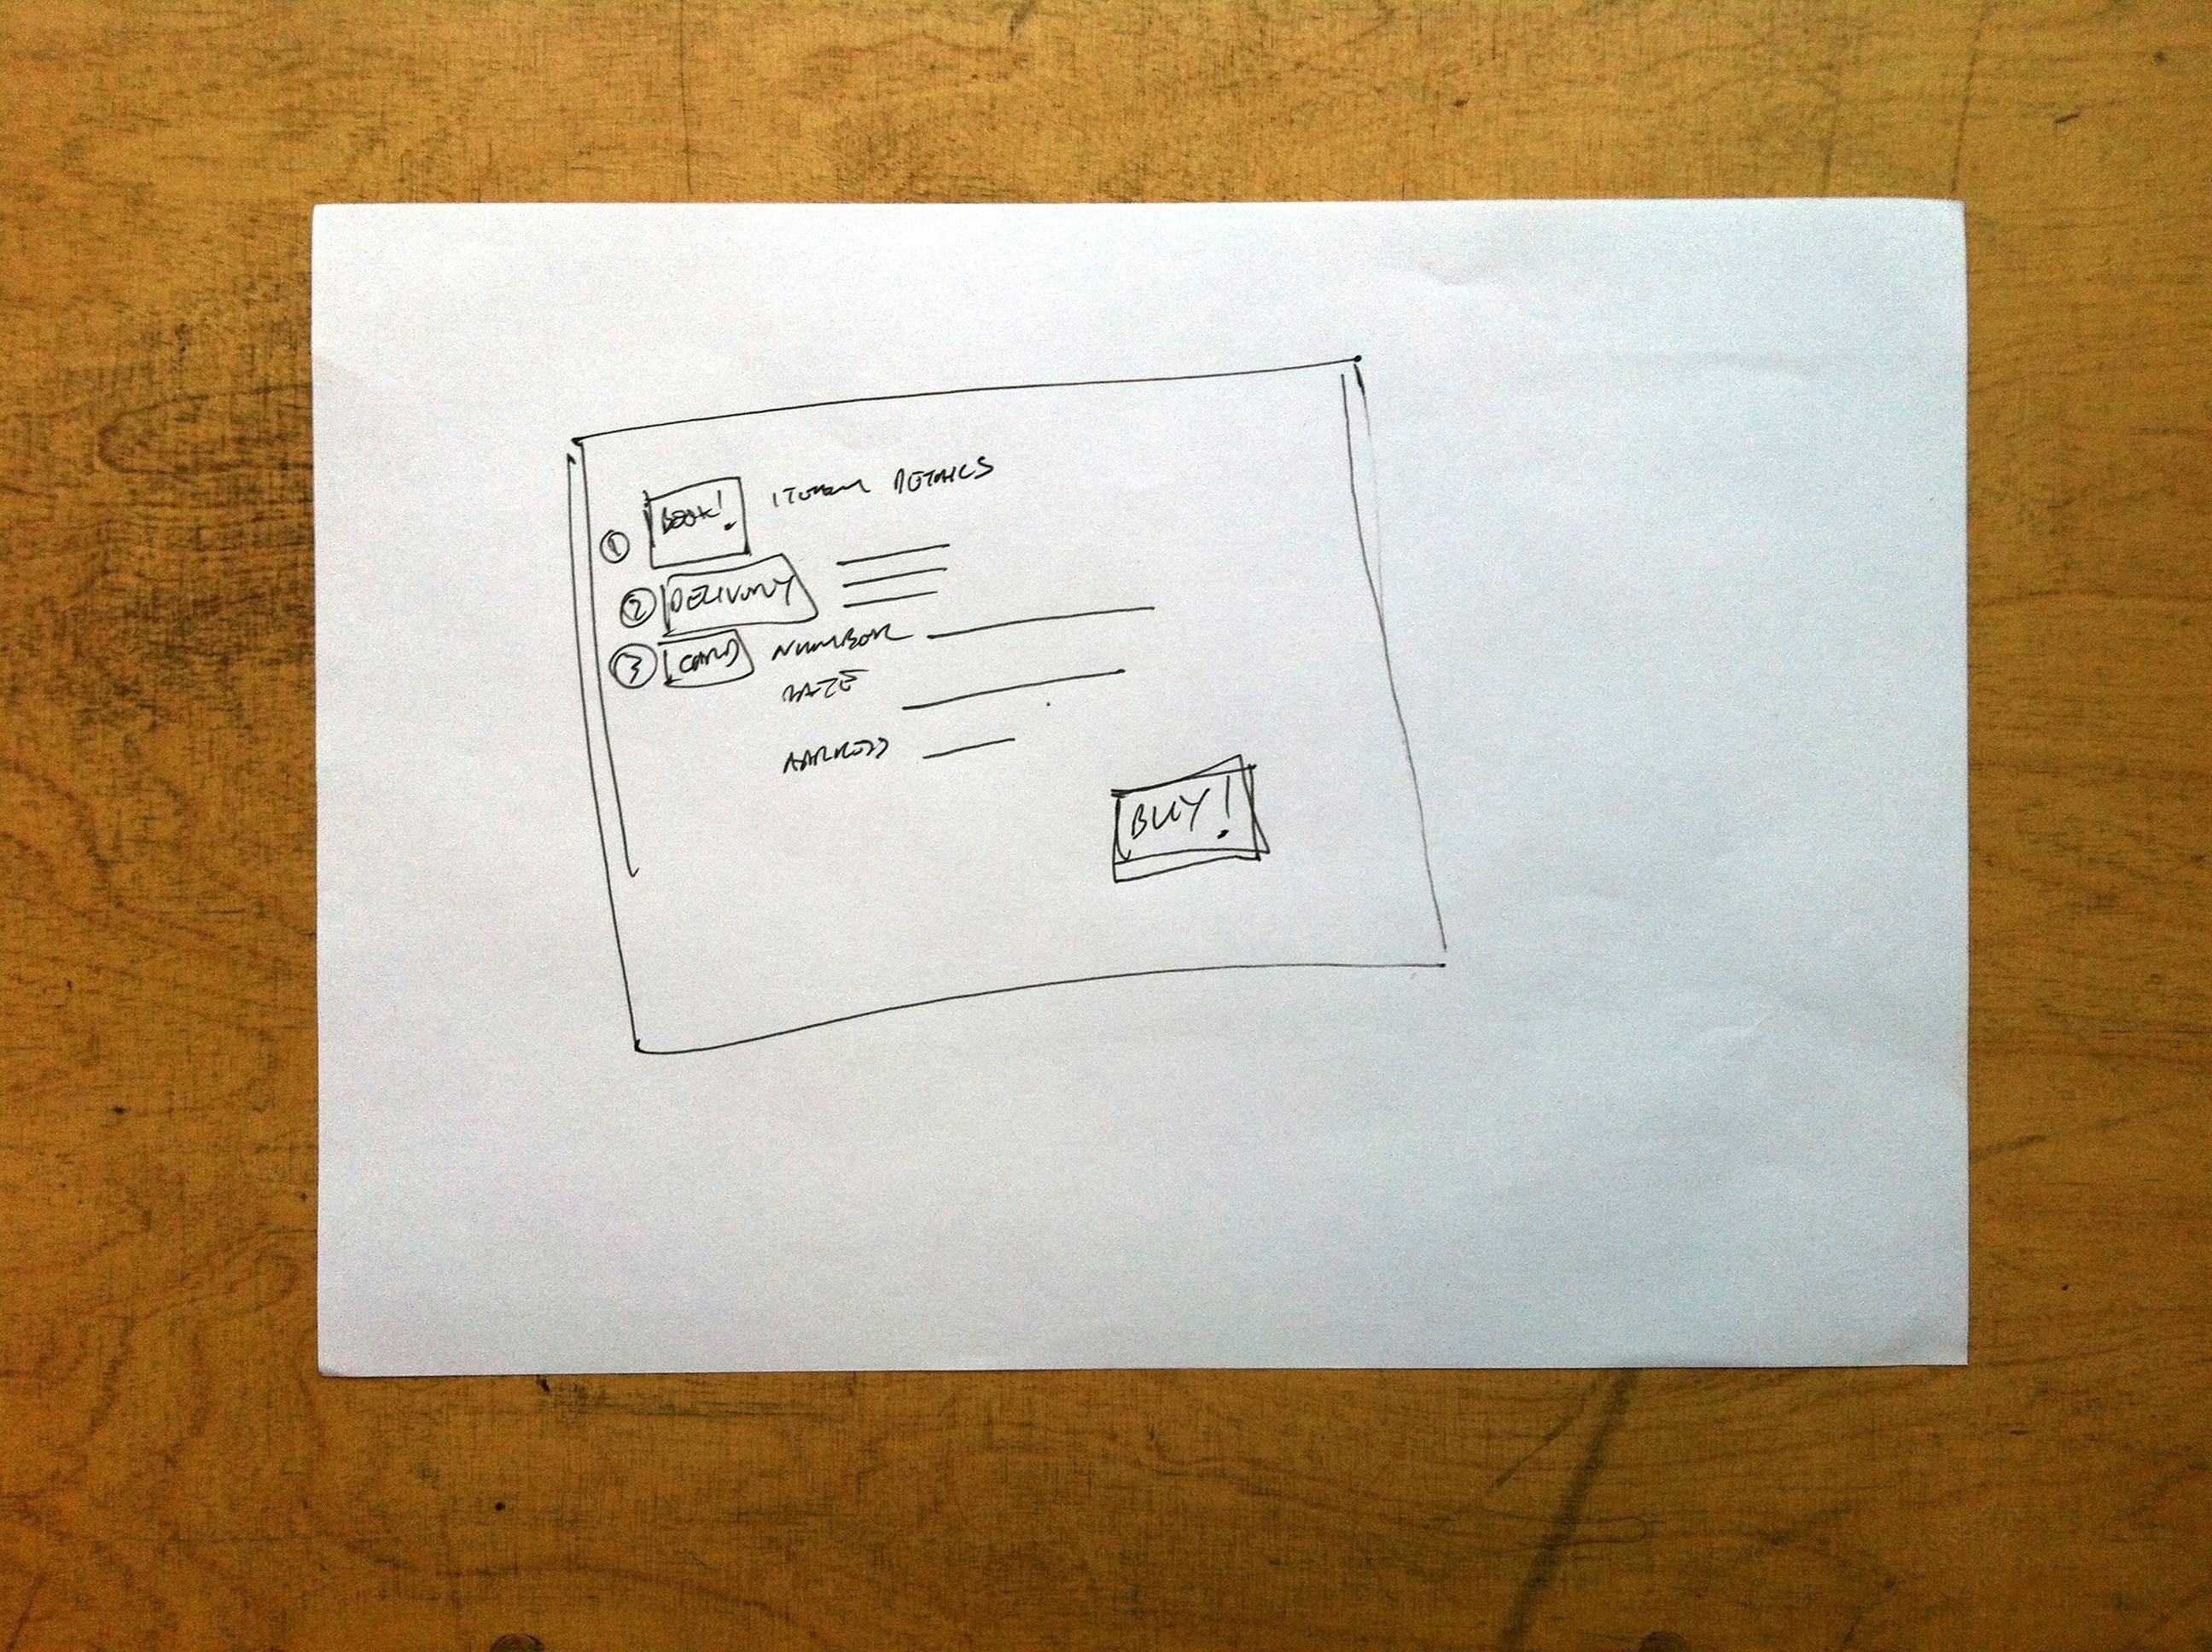 1 BOOK! ITEM DETAILS
2 DELIVERY
3 CARD NUMBER
DATE
ADDRESS
BUY!